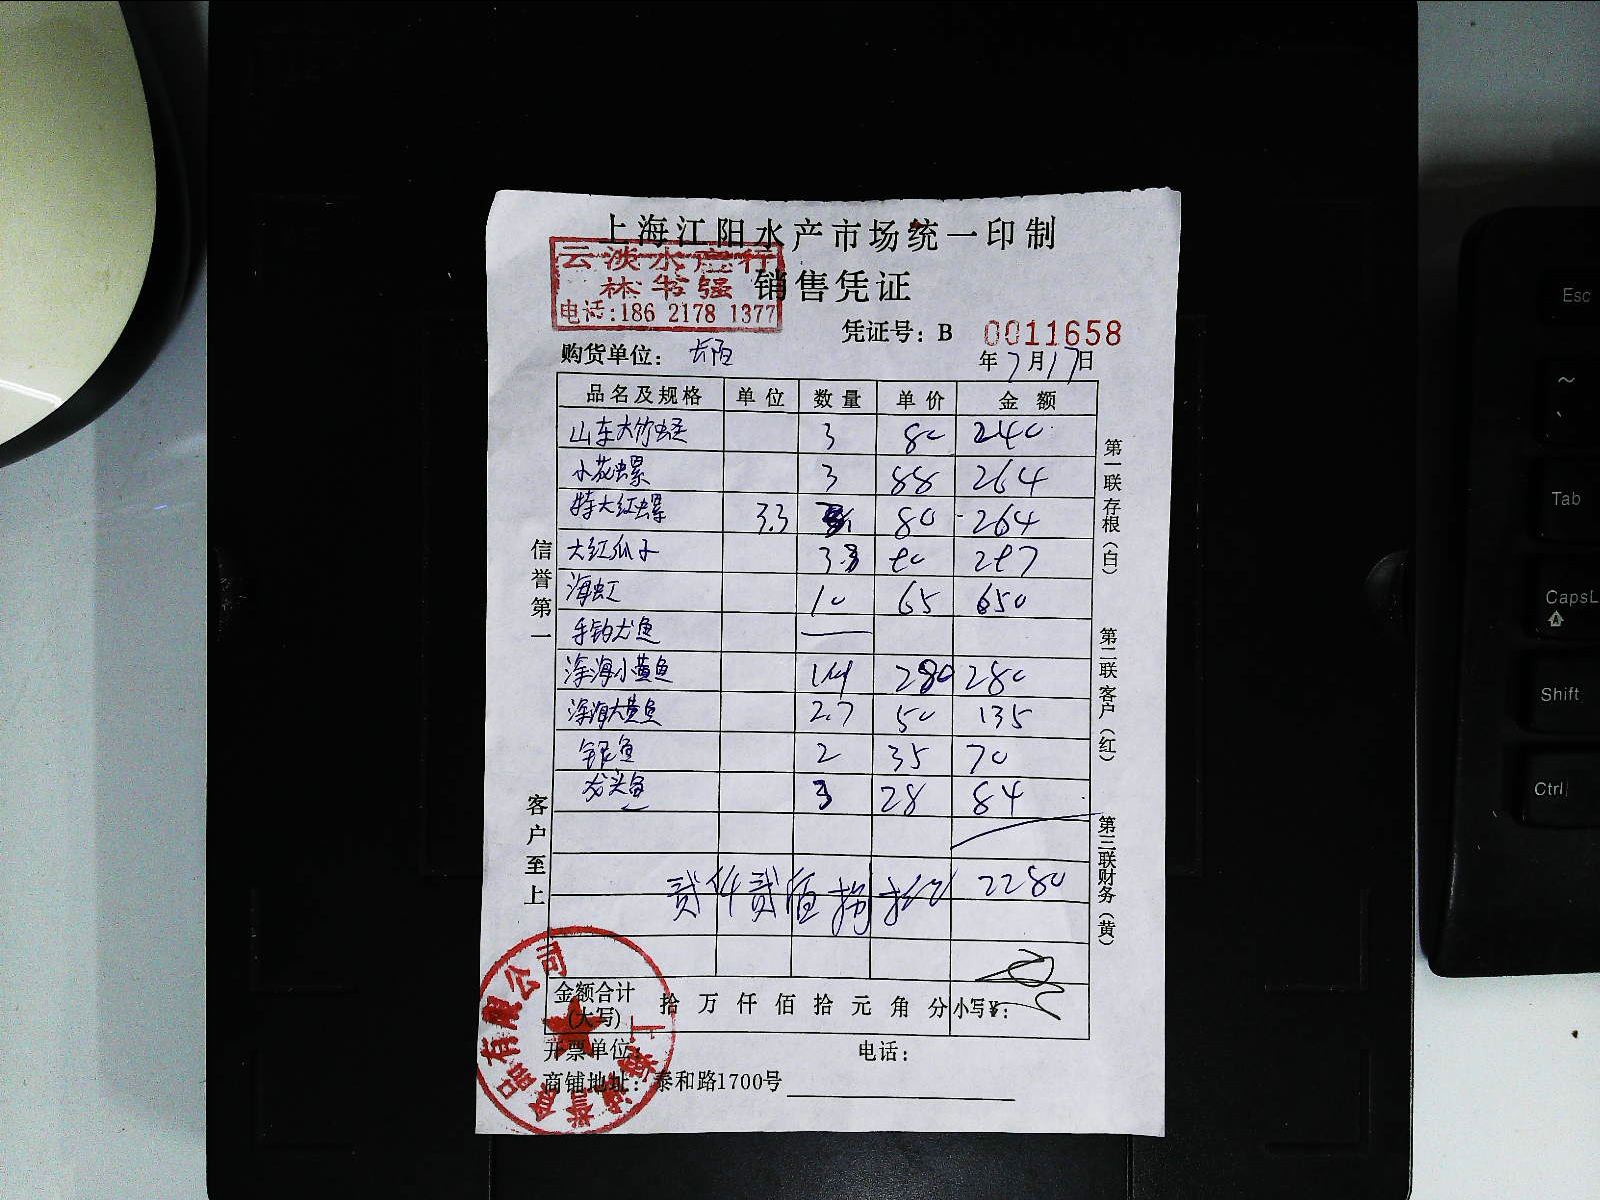 上海江阳水产市场统一印制
云淡水产行
林书强
销售凭证
电话:186 2178 1377
凭证号: B 0011658
购货单位: 年7月17日
品名及规格 单位 数量 单价 金额
山东大竹蛏 3 80 240
小花螺 3 88 264
特大红螺 3.3 80 264
大红瓜子
海虹 10 65 650
手钓尤鱼
深海小黄鱼 280 280
深海大黄鱼 2.7 50 135
银鱼 2 35 70
龙头鱼 3 28 84
贰仟贰佰捌拾 2280
金额合计(大写) 拾 万 仟 佰 拾 元 角 分 小写¥:
开票单位: 电话:
商铺地址: 泰和路1700号
信誉第一
客户至上
第一联存根(白)
第二联客户(红)
第三联财务(黄)
食品有限公司
Esc
~
Tab
CapsL
Shift
Ctrl